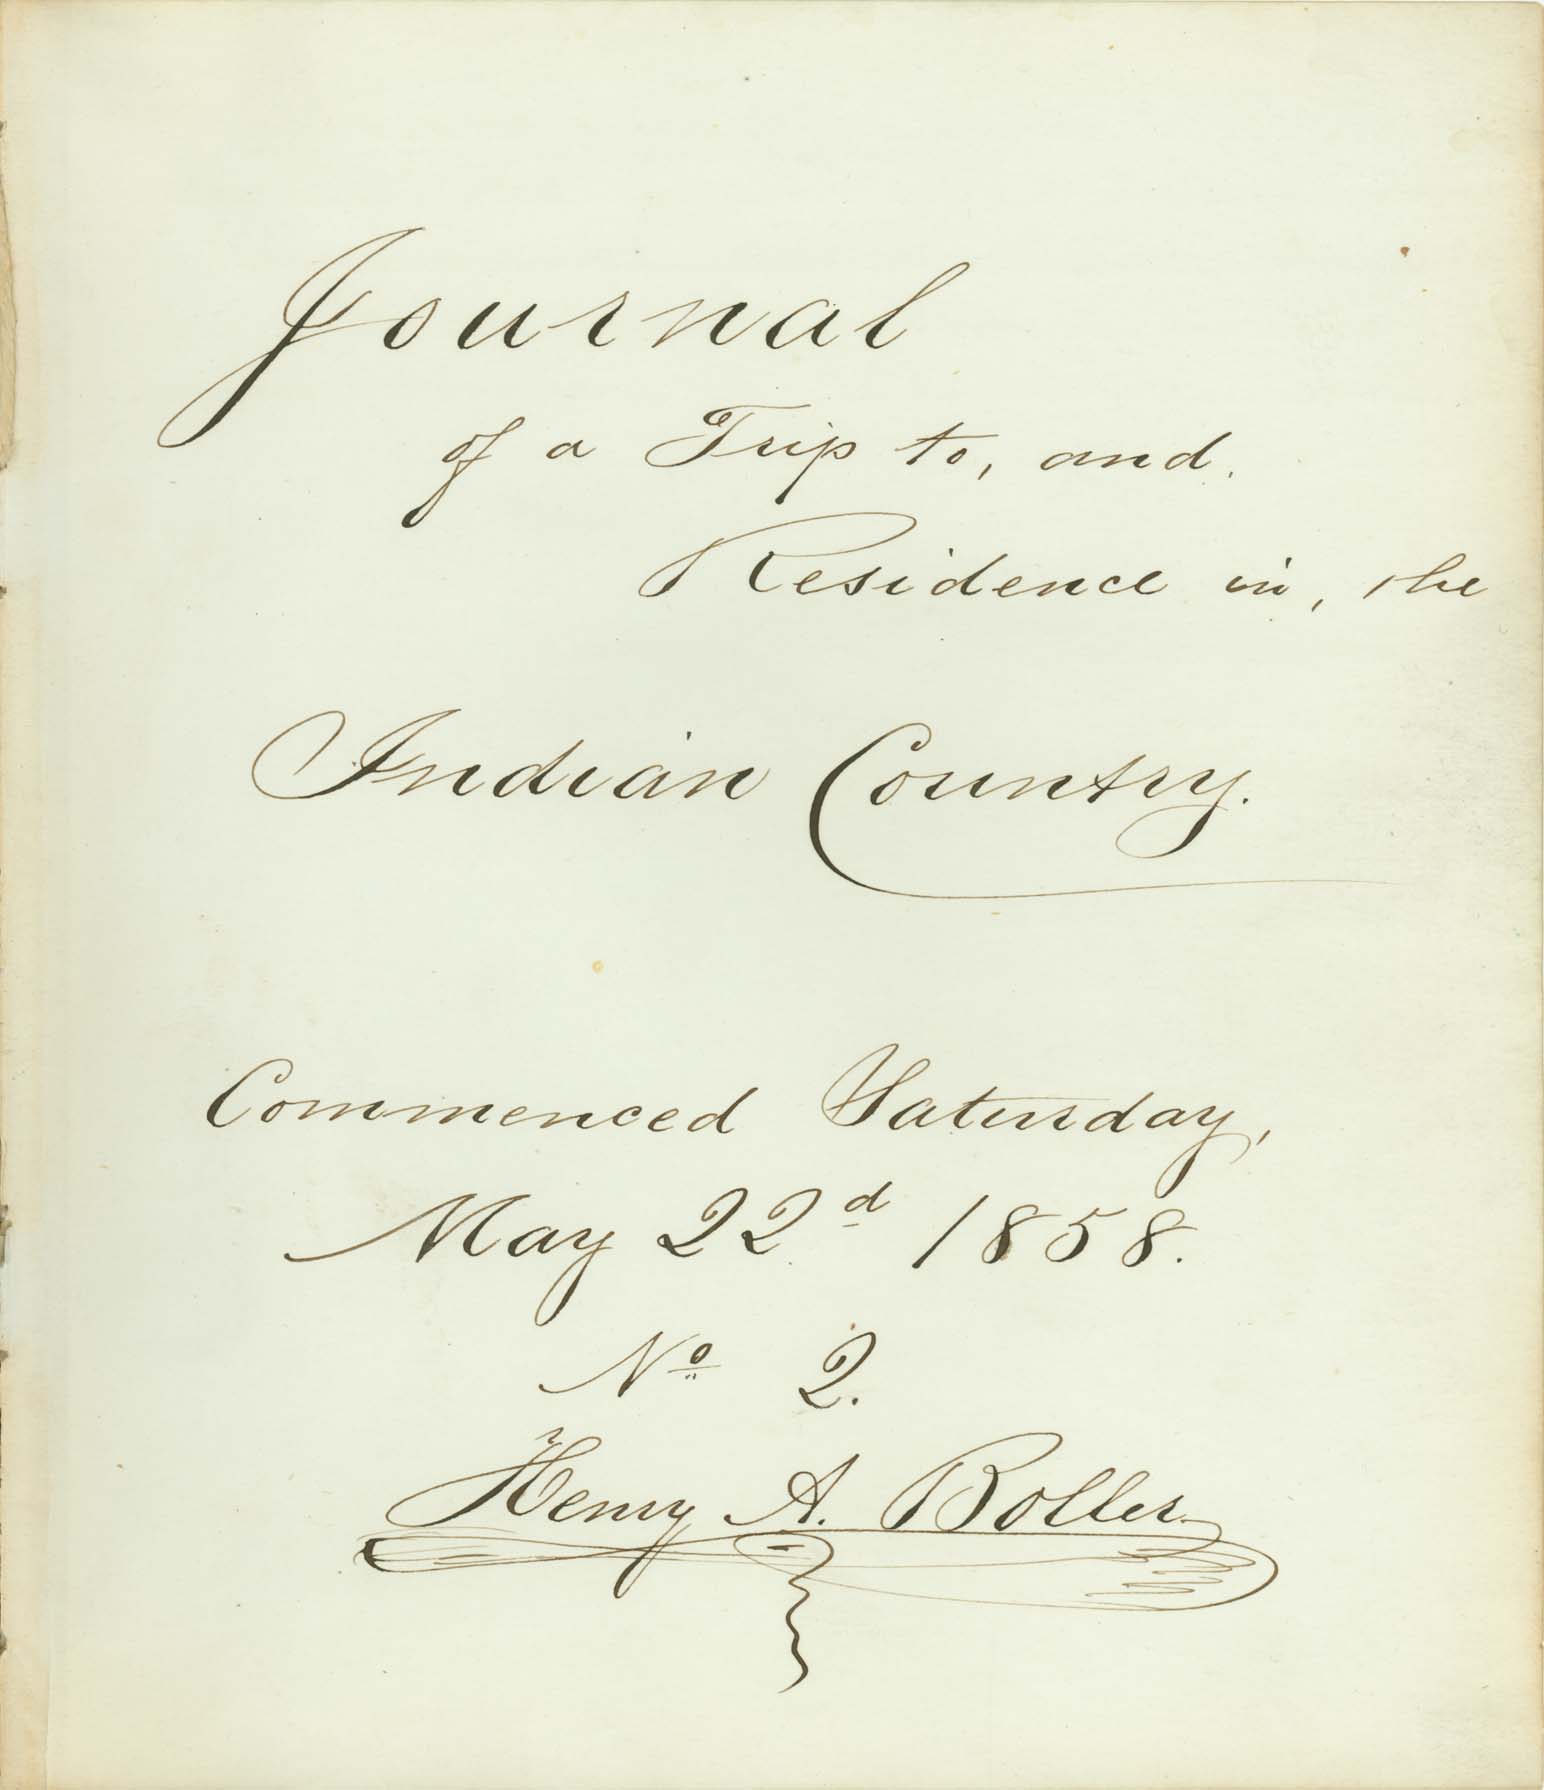 Journal
of a Trip to, and
Residence in, the
Indian Country.
Commenced Saturday,
May 22d 1858.
No 2.
Henry A. Boller